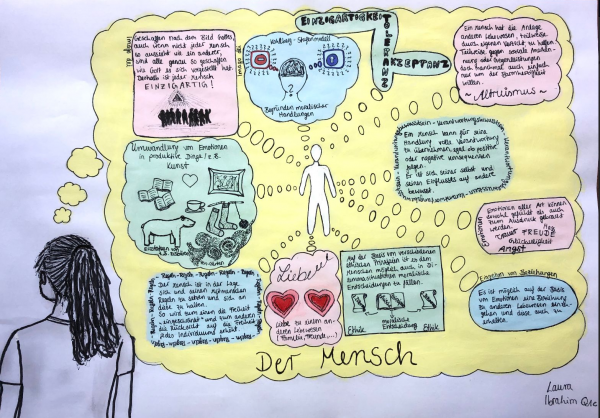 Geschaffen nach dem Bild Gottes,
auch wenn nicht jeder Mensch
so aussieht wie ein anderer,
sind alle genau so geschaffen
wie Gott es sich vorgestellt hat.
Deshalb ist jeder Mensch
EINZIGARTIG!
Imago dei
Kohlberg - Stufenmodell
?
Begründen moralischer
Handlungen
EINZIGARTIGKEIT
TOLERANZ
AKZEPTANZ
Ein Mensch hat die Anlage
anderen Lebewesen, teilweise
durch eigenen Verzicht zu helfen.
Teilweise gegen soziale Anerkennung
oder Gegenleistungen
doch manchmal auch einfach
nur um der Barmherzigkeit
willen.
~Altruismus~
Umwandlung von Emotionen
in produktive Dinge/z.B.
Kunst
Emotionen
Ein Mensch kann für seine
Handlung volle Verantwortung
übernehmen, egal ob positive
oder negative Konsequenzen
folgen.
Er ist sich seiner selbst und
seines Einflusses auf andere
bewusst.
Emotionen
Emotionen aller Art können
sowohl gefühlt als auch
zum Ausdruck gebracht
werden.
FREUDE
Glückseligkeit
Angst
Regeln - Regeln - Regeln - Regeln
Der Mensch ist in der Lage
sich und seinen Mitmenschen
Regeln zu setzen und sich an
diese zu halten.
So wird zum einen die Freiheit
"eingeschränkt" und zum anderen
die Rücksicht auf die Freiheit
jedes Individuums
Liebe
Liebe zu einem anderen
Lebewesen
(Familie, Freunde, ...)
Auf der Basis von verschiedenen
ethischen Prinzipien ist es dem
Menschen möglich, auch in Dilemmasituationen
moralische
Entscheidungen zu fällen.
Ethik
moralische
Entscheidung
Ethik
Eingehen von Beziehungen
Es ist möglich auf der Basis
von Emotionen eine Beziehung
zu anderen Lebewesen einzugehen
und diese auch zu
erhalten.
Der Mensch
Laura
Ibrahim Q1c